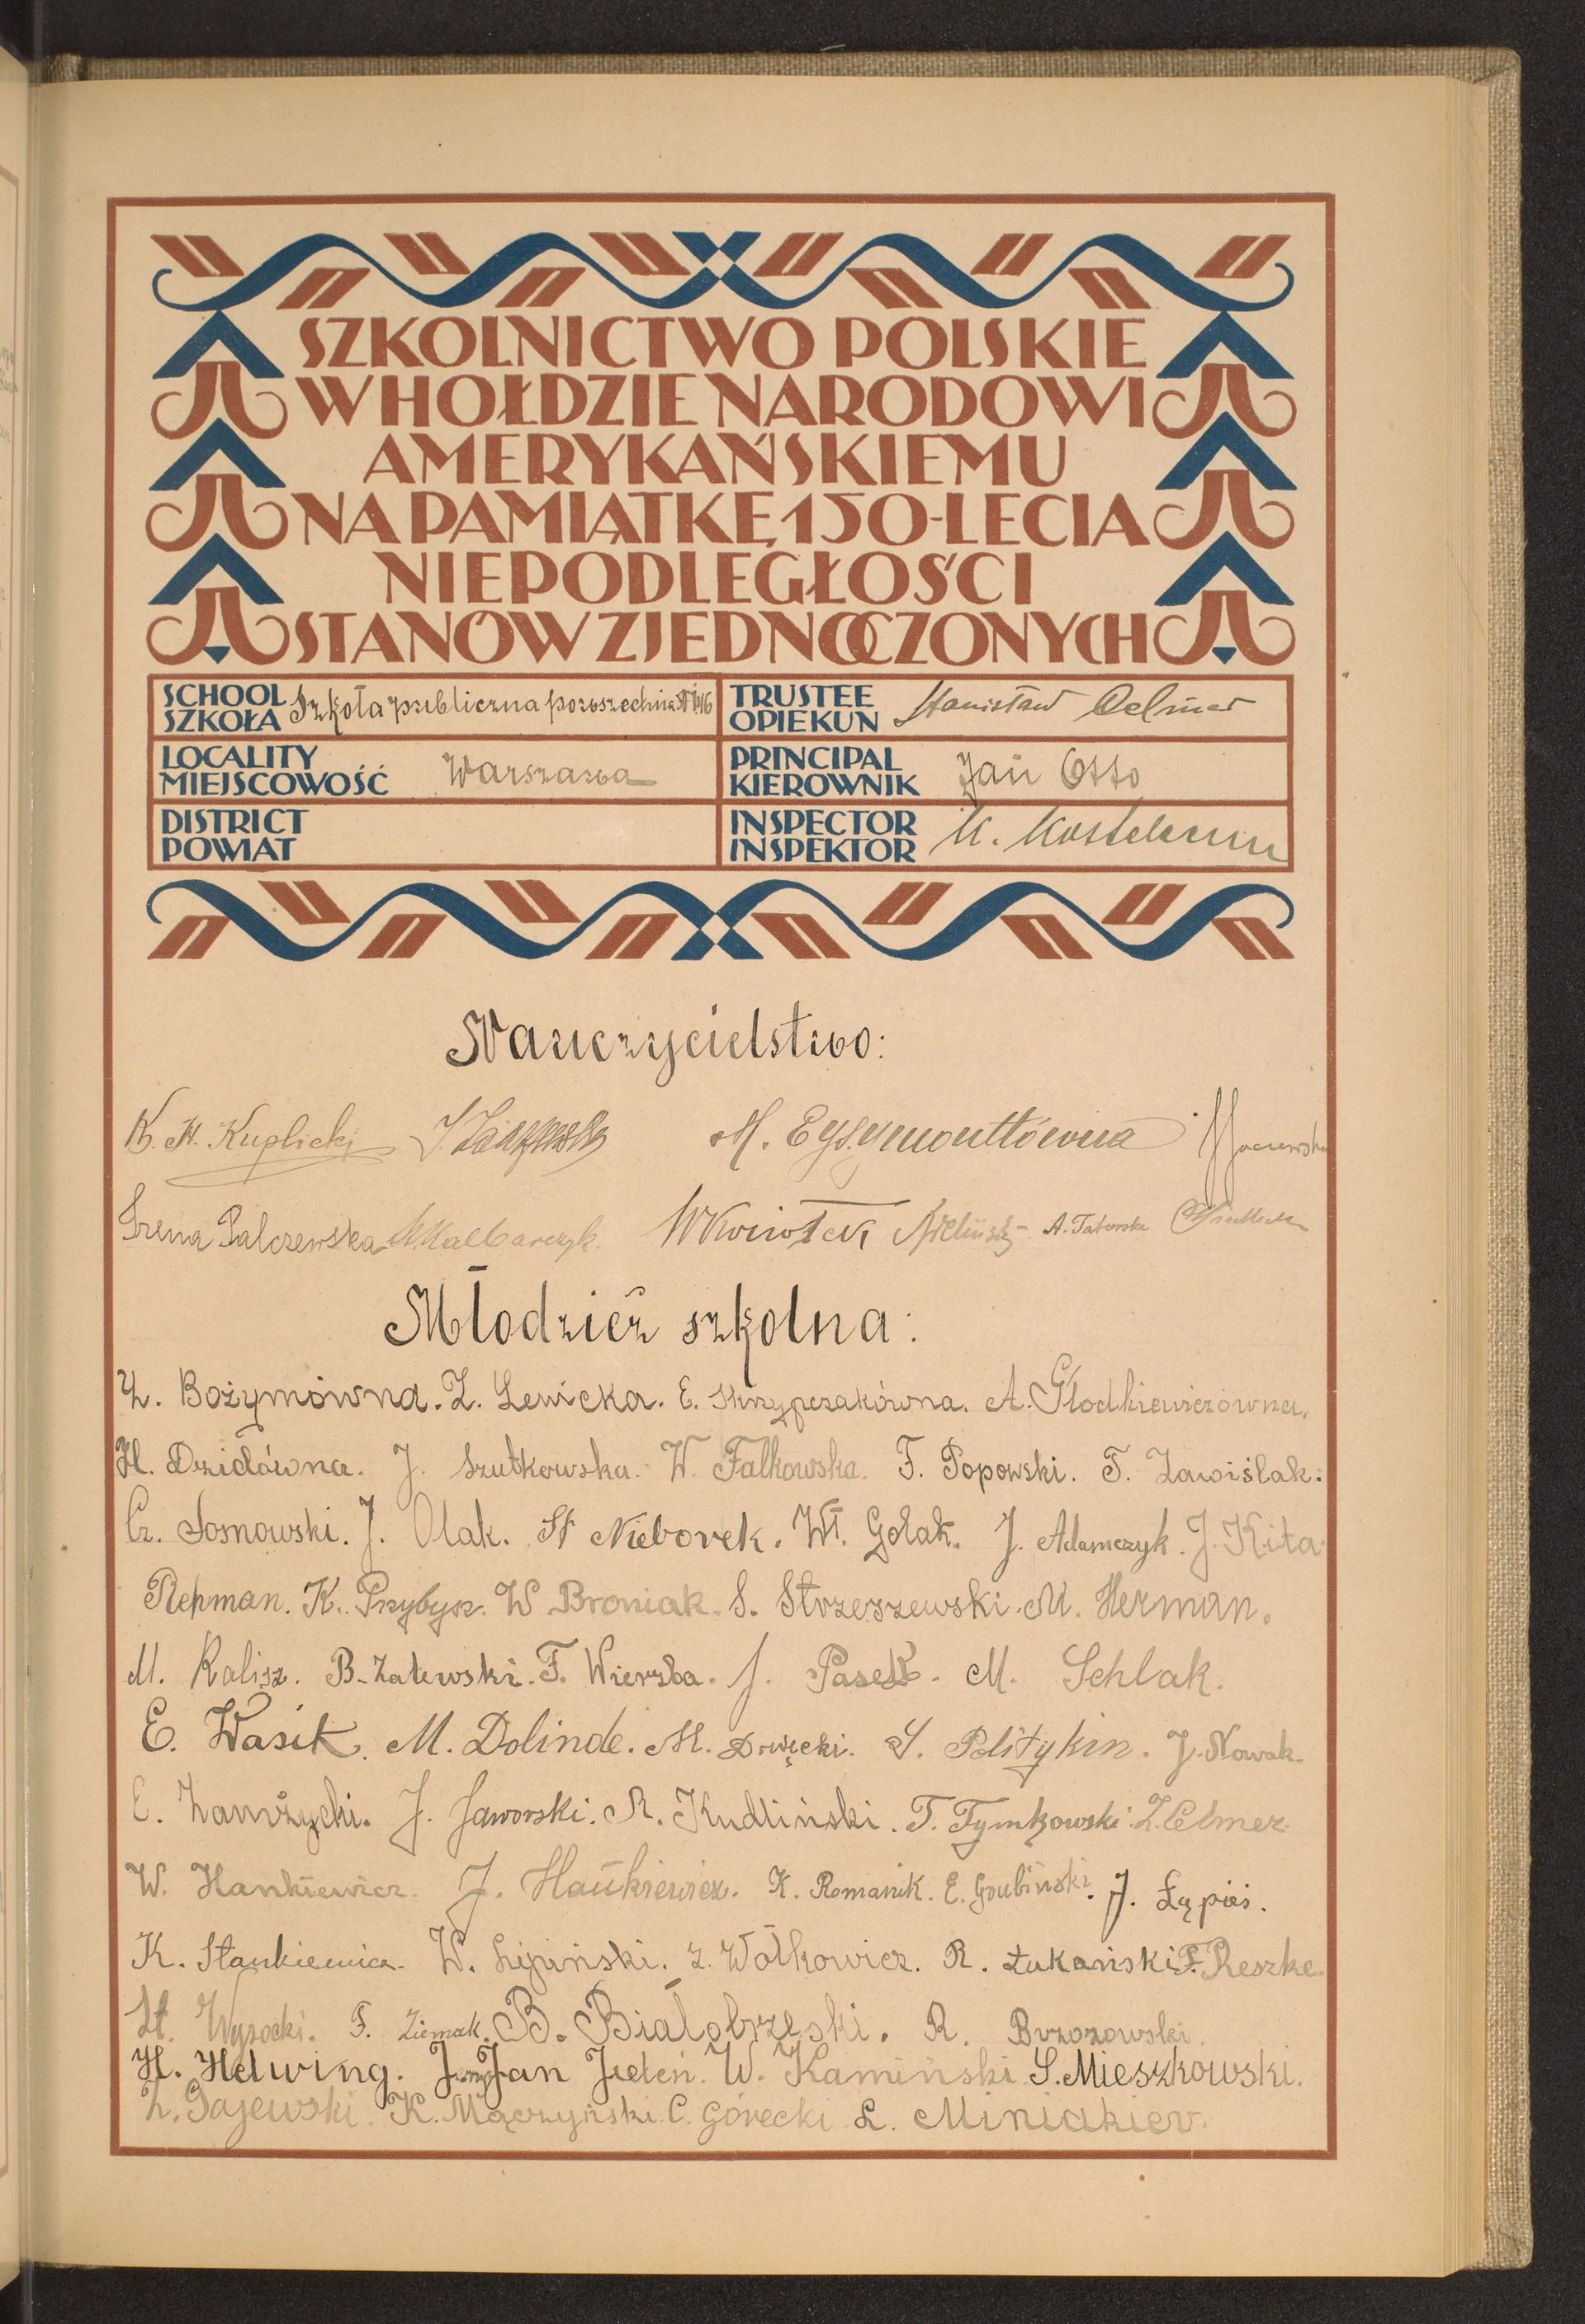 SZKOLNICTWO POLSKIE
W HOŁDZIE NARODOWI
AMERYKAŃSKIEMU
NA PAMIĄTKĘ 150-LECIA
NIEPODLEGŁOŚCI
STANÓW ZJEDNOCZONYCH
SCHOOL
SZKOŁA Szkoła publiczna powszechna
TRUSTEE
OPIEKUN Stanisław
LOCALITY
MIEJSCOWOŚĆ Warszawa
PRINCIPAL
KIEROWNIK Jan Otto
DISTRICT
POWIAT
INSPECTOR
INSPEKTOR K.
Nauczycielstwo:
K. H. Kuplicki M. Eysymonttówna
Irena Palczewska M. Kalbarczyk. W Kwiotek A. Tatarska
Młodzież szkolna:
Z. Bożymówna. Z. Lewicka. E. Skrzypczakówna. A. Głodkiewiczówna.
H. Dzidówna. J. Szutkowska. W. Falkowska. F. Popowski. T. Zawiślak.
Cz. Sosnowski. J. Olak. St Nieborek. Wł. Golak. J. Adamczyk. J. Kita
Repman. K. Przybysz. W Broniak. S. Strzeszewski. M. Herman.
M. Kalisz. B. Zalewski. F. Wierzba. J. Pasek. M. Schlak.
E. Wasik. M. Dolinde. M. Drwęcki. S. Politykin. J. Nowak.
E. J. Jaworski. R. Kudliński. T. Tymkowski. Z. Elmer
W. Hankiewicz. J. Hankiewicz. K. Romanik. E. Grubiński. J. Łąpieś.
K. Stankiewicz. W. Lipiński. Z. Wołkowicz. R. Łukański F. Reszke.
St. Wysocki. F. Ziemak. B. Białobrzeski. R. Brzozowski.
H. Helwing. Jan Jeleń. W. Kamiński S. Mieszkowski.
Z. Gajewski. K. Mączyński. C. Górecki L. Miniakier.